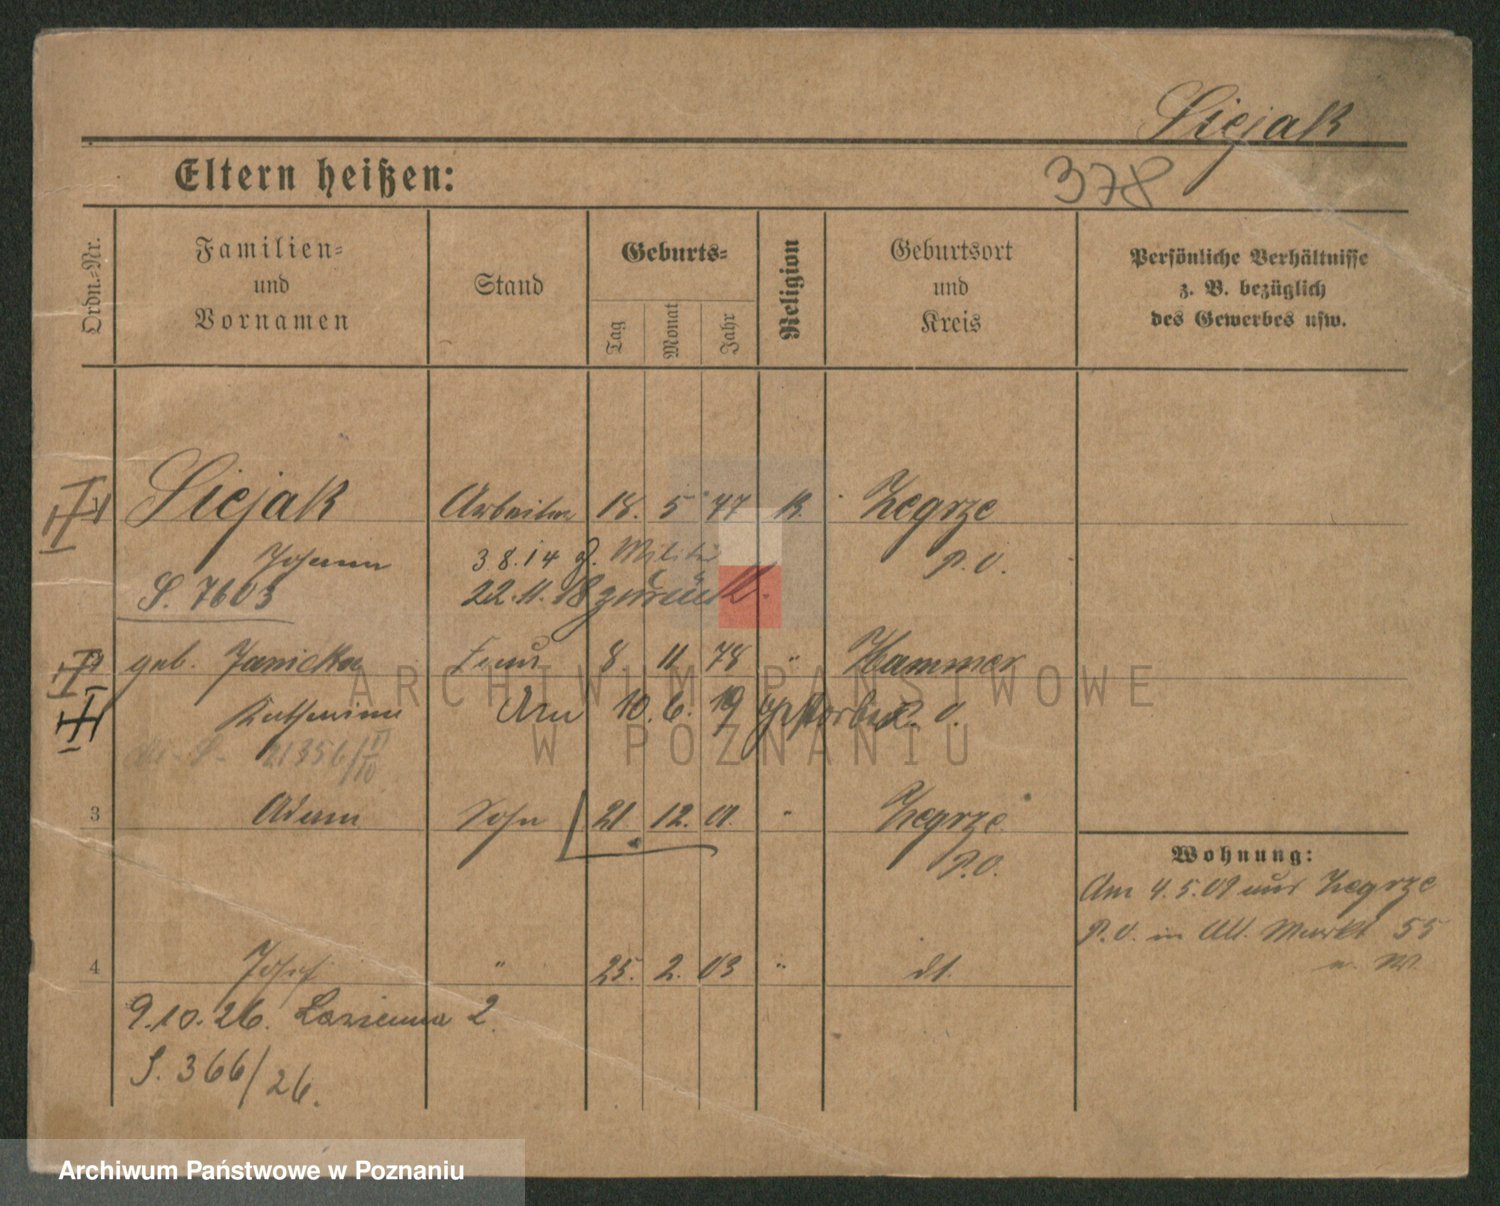 Siejak
Eltern heißen:
378
Ordn.-Nr.
Familien-
und
Vornamen
Stand
Geburts-
Tag
Monat
Jahr
Religion
Geburtsort
und
Kreis
Persönliche Verhältnisse
z. B. bezüglich
des Gewerbes usw.
Siejak Arbeiter 18. 5 77 k. Zegrze
Johann 3 8.14 z. Militär P. O.
S. 7603 22.11.18 zurück.
geb. Janicka Frau 8. 11 78 " Hammer
Katharina Am 10. 6. 19 gestorben P. O.
21356/
3 Adam Sohn 21. 12. 01. " Zegrze
P.O.
Wohnung:
Am 4.5.09 aus Zegrze
P.O. in Alt. Markt 55
4 Josef " 25. 2. 03 " dt.
9.10.26. Lazienna 2.
S. 366/26.
ARCHIWUM PAŃSTWOWE
W POZNANIU
Archiwum Państwowe w Poznaniu